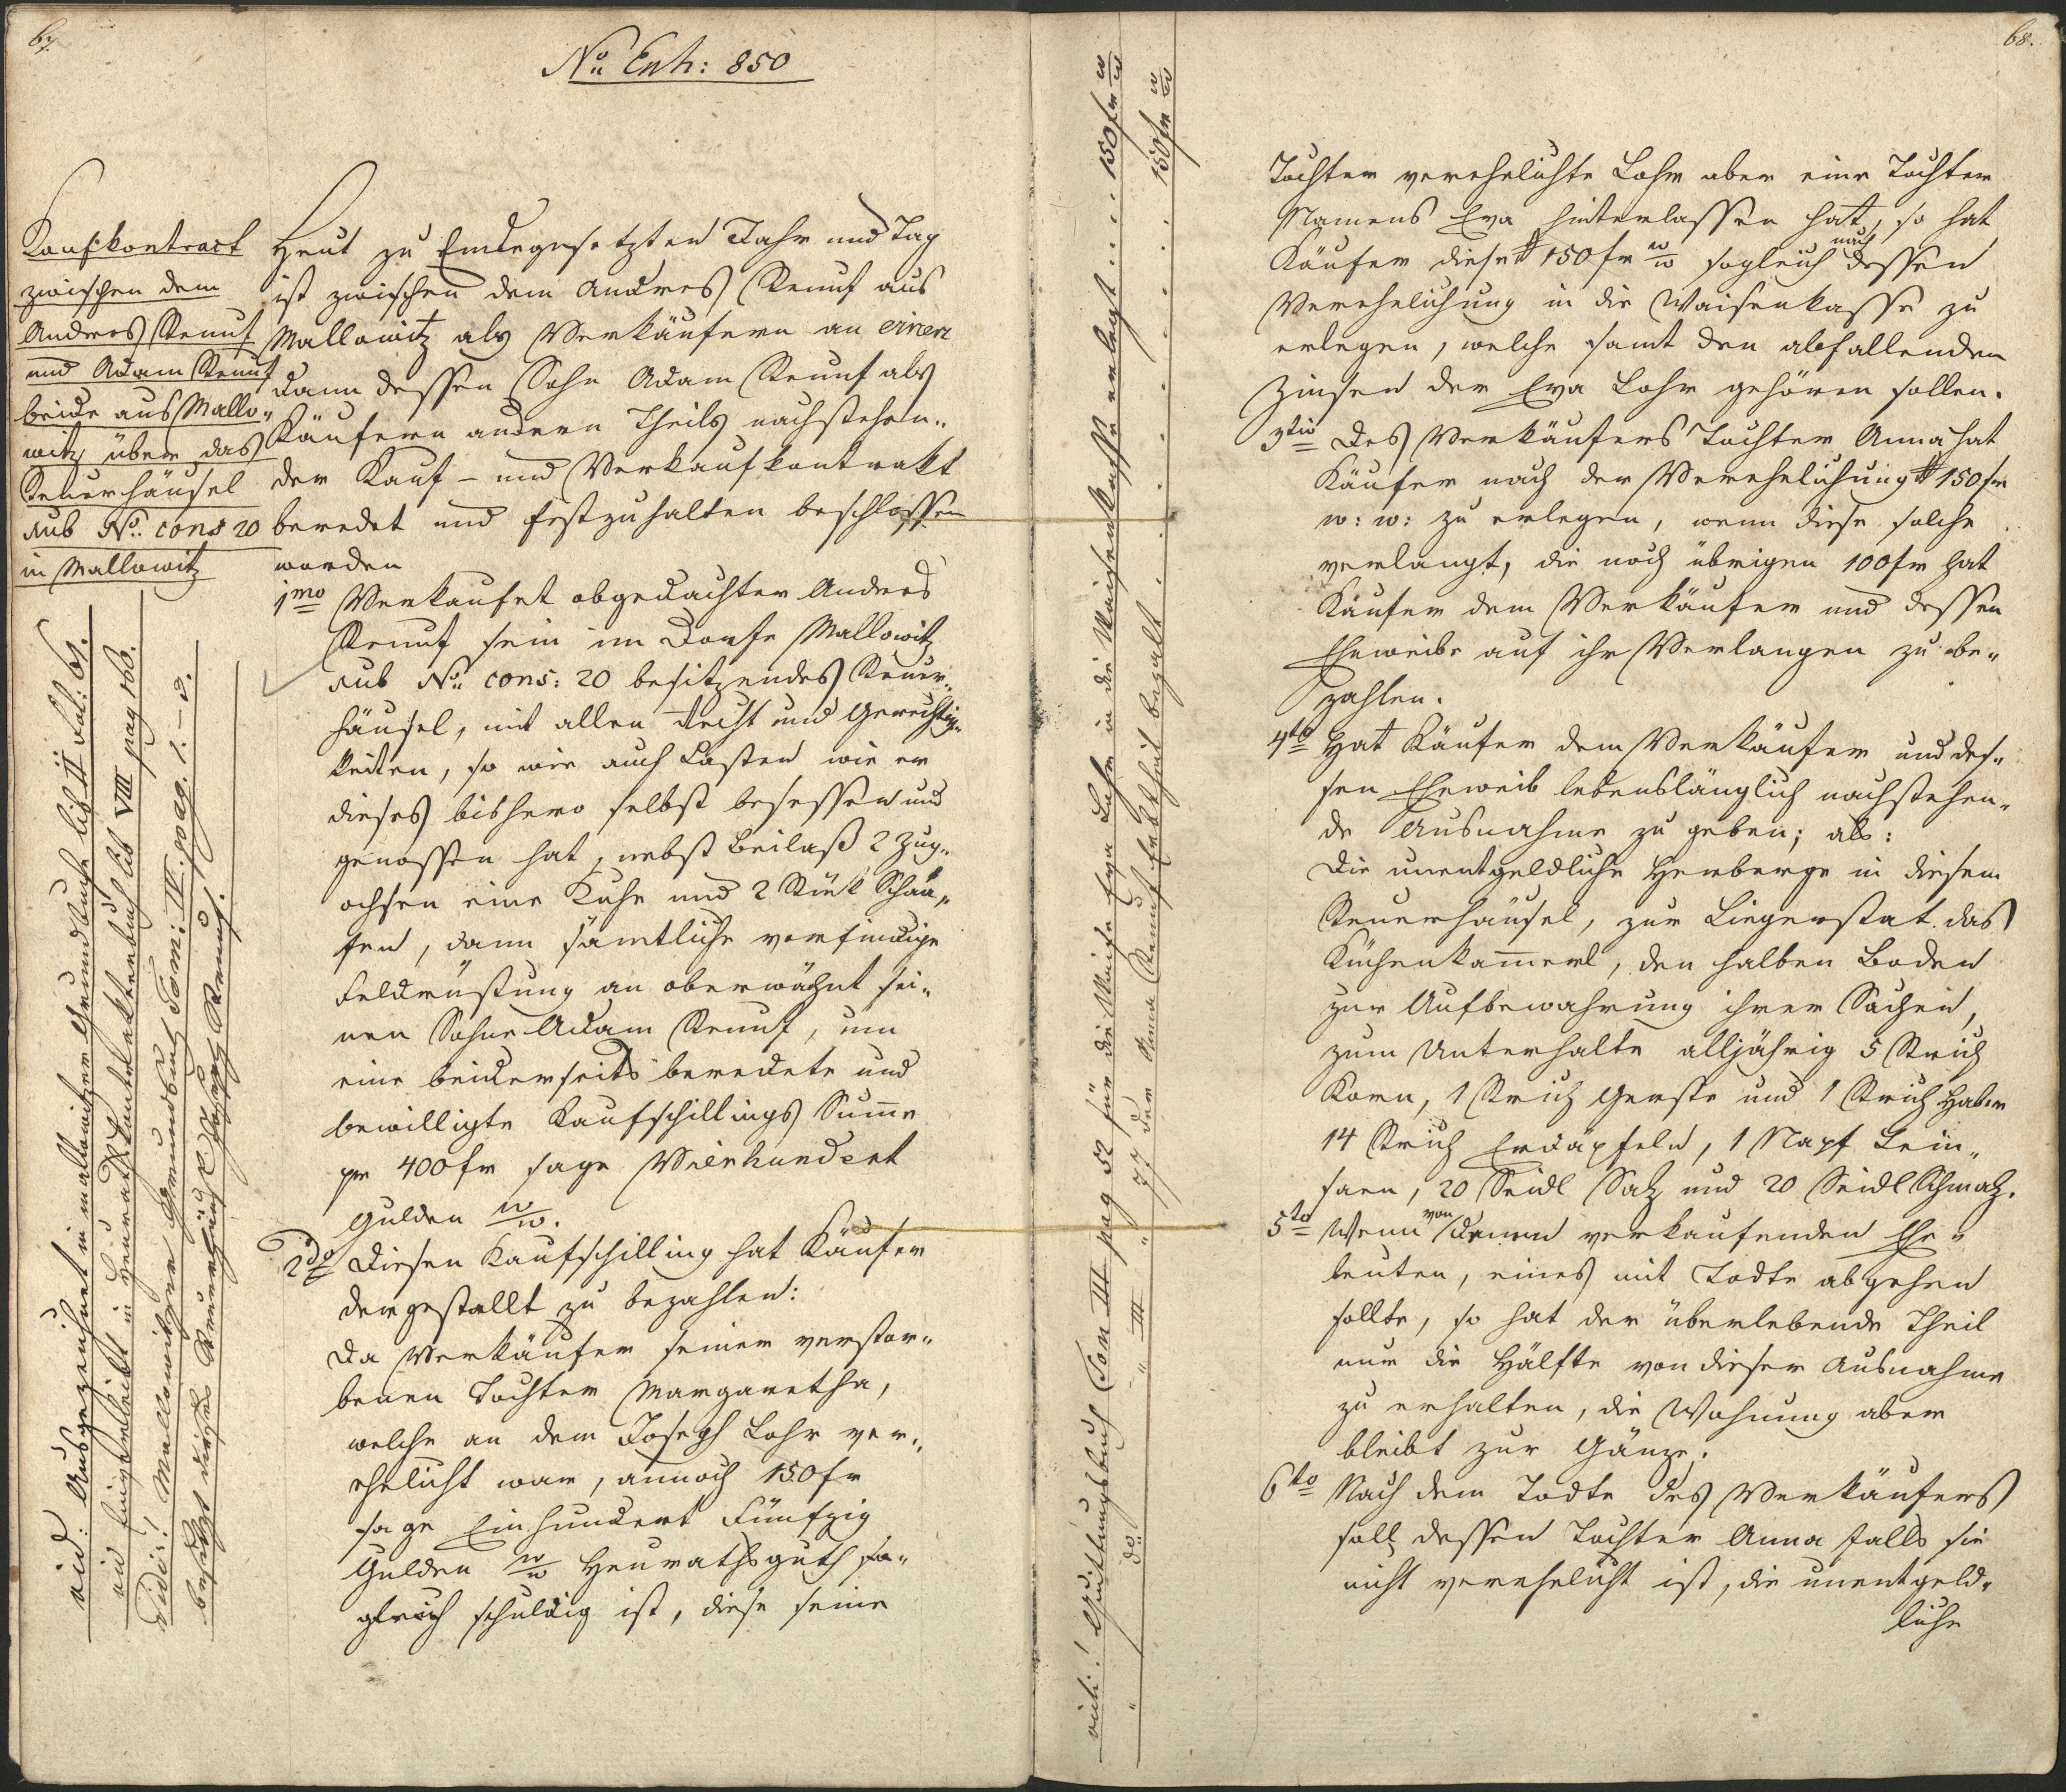 67.
No Enh: 850
Kaufkontract
zwischen dem
Andres Renuf
und Adam Renuf
beide aus Mallo„
witz über das
Steuerhäusel
sub No. cons 20
in Mallowitz
Heut zu Endegesetzten Jahr und Tag
ist zwischen dem Andres Renuf aus
Mallowitz als Verkäufern an einen
dann dessen Sohn Adam Renuf als
Käufern andern Theils nachstehen„
der Kauf- und Verkaufkontrakt
beredet und festzuhalten beschlossen
worden
1mo Verkaufet obgedachter Andres
Renuf sein im Dorfe Mallowitz
sub No. cons: 20 besitzendes Steuer„
häusel, mit allen Recht und Gerechtig„
keiten, so wie auch Lasten wie er
dieses bishero selbst besessen und
genossen hat, nebst Beilaß 2 Zug„
ochsen eine Kuhe und 2 Stück Schaa„
fen, dann sämtliche vorfindige
Feldrüstung an oberwähnt sei„
nen Sohne Adam Renuf, um
eine beiderseits beredete und
bewilligte Kaufschillings Summe
pr 400 fr sage Vierhundert
Gulden w/w.
2do Diesen Kaufschilling hat Käufer
dergestallt zu bezahlen:
Da Verkäufer seiner verstor„
benen Tochter Margaretha,
welche an dem Joseph Lohr ver„
ehelicht war, annoch 150 fr
sage Einhundert Fünfzig
Gulden w/w Heurathsguth so„
gleich schuldig ist, diese seine
vid: Ausgezeichnet in mallowitzer Grundbuche lib II Fol: 69.
vid Eingverleibt in Heurathskontraktenbuch lib VIII pag 160.
Vidi:! Mallowitzer Grundbuch Tom: IV. pag. 1.
besitzt dieses Steuerhäusel Joseph Renuf.
vidi:! Quittungsbuch Tom III pag 52 für die Waise Eva Lohr in die Waisenkasse erlegt . . . . 150 fr w/w
„ do. „ III „ 77 der Anna Renuf Erbtheil bezalt . . . . . . . 150 fr w/w
68.
Tochter verehelichte Lohr aber eine Tochter
Namens Eva hinterlassen hat, so hat
Käufer diese # 150 fr w/w sogleich nach dessen
Verehelichung in die Waisenkasse zu
erlegen, welche samt den abfallenden
Zinsen der Eva Lohr gehören sollen.
3tio Des Verkäufers Tochter Anna hat
Käufer nach der Verehelichung # 150 fr
w: w: zu erlegen, wenn diese solche
verlangt, die noch übrigen 100 fr hat
Käufer dem Verkäufer und dessen
Eheweibe auf ihr Verlangen zu be„
zahlen.
4to Hat Käufer dem Verkäufer und des„
sen Eheweib lebenslänglich nachstehen„
de Ausnahme zu geben; als:
Die unentgeldliche Herberge in diesem
Steuerhäusel, zur Liegerstat das
Küchenkammerl, den halben Boden
zur Aufbewahrung ihrer Sachen,
zum Unterhalte alljährig 5 Strich
Korn, 1 Strich Gerste und 1 Strich Haber
14 Strich Erdäpfeln, 1 Napf Lein„
saen, 20 Seidl Salz und 20 Seidl Schmalz.
5to Wenn von denen verkaufenden Ehe„
leuten, eines mit Todte abgehen
sollte, so hat der überlebende Theil
nur die Hälfte von dieser Ausnahme
zu erhalten, die Wohnung aber
bleibt zur Gänze.
6to Nach dem Todte des Verkäufers
soll dessen Tochter Anna falls sie
nicht verehelicht ist, die unentgeld„
liche